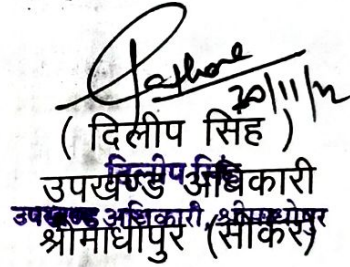 20/11/
( दिलीप सिंह )
दिलीप सिंह
उपखण्ड अधिकारी
उपखण्ड अधिकारी, श्रीमाधोपुर
श्रीमाधोपुर (सीकर)